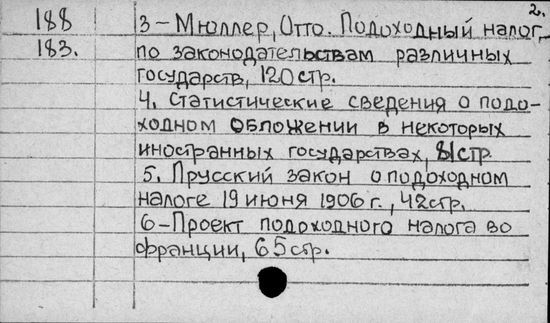 2.
188 3 – Мюллер, Отто. Подоходный налог
183. по законодательствам различных
государств, 120 стр.
4. Статистические сведения о подо-
ходном обложении в некоторых
иностранных государствах, 81 стр
5. Прусский закон о подоходном
налоге 19 июня 1906 г., 42 стр.
6 – Проект подоходного налога во
франции, 65 стр.